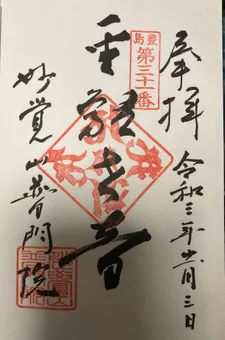 奉拝 令和三年十一月三日
豊島
第三十一番
聖観世音
妙覚山普門院